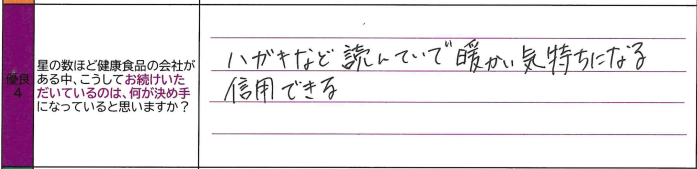 優良
4
星の数ほど健康食品の会社が
ある中、こうしてお続けいた
だいているのは、何が決め手
になっていると思いますか？
ハガキなど読んでいで暖かい気持ちになる
信用できる